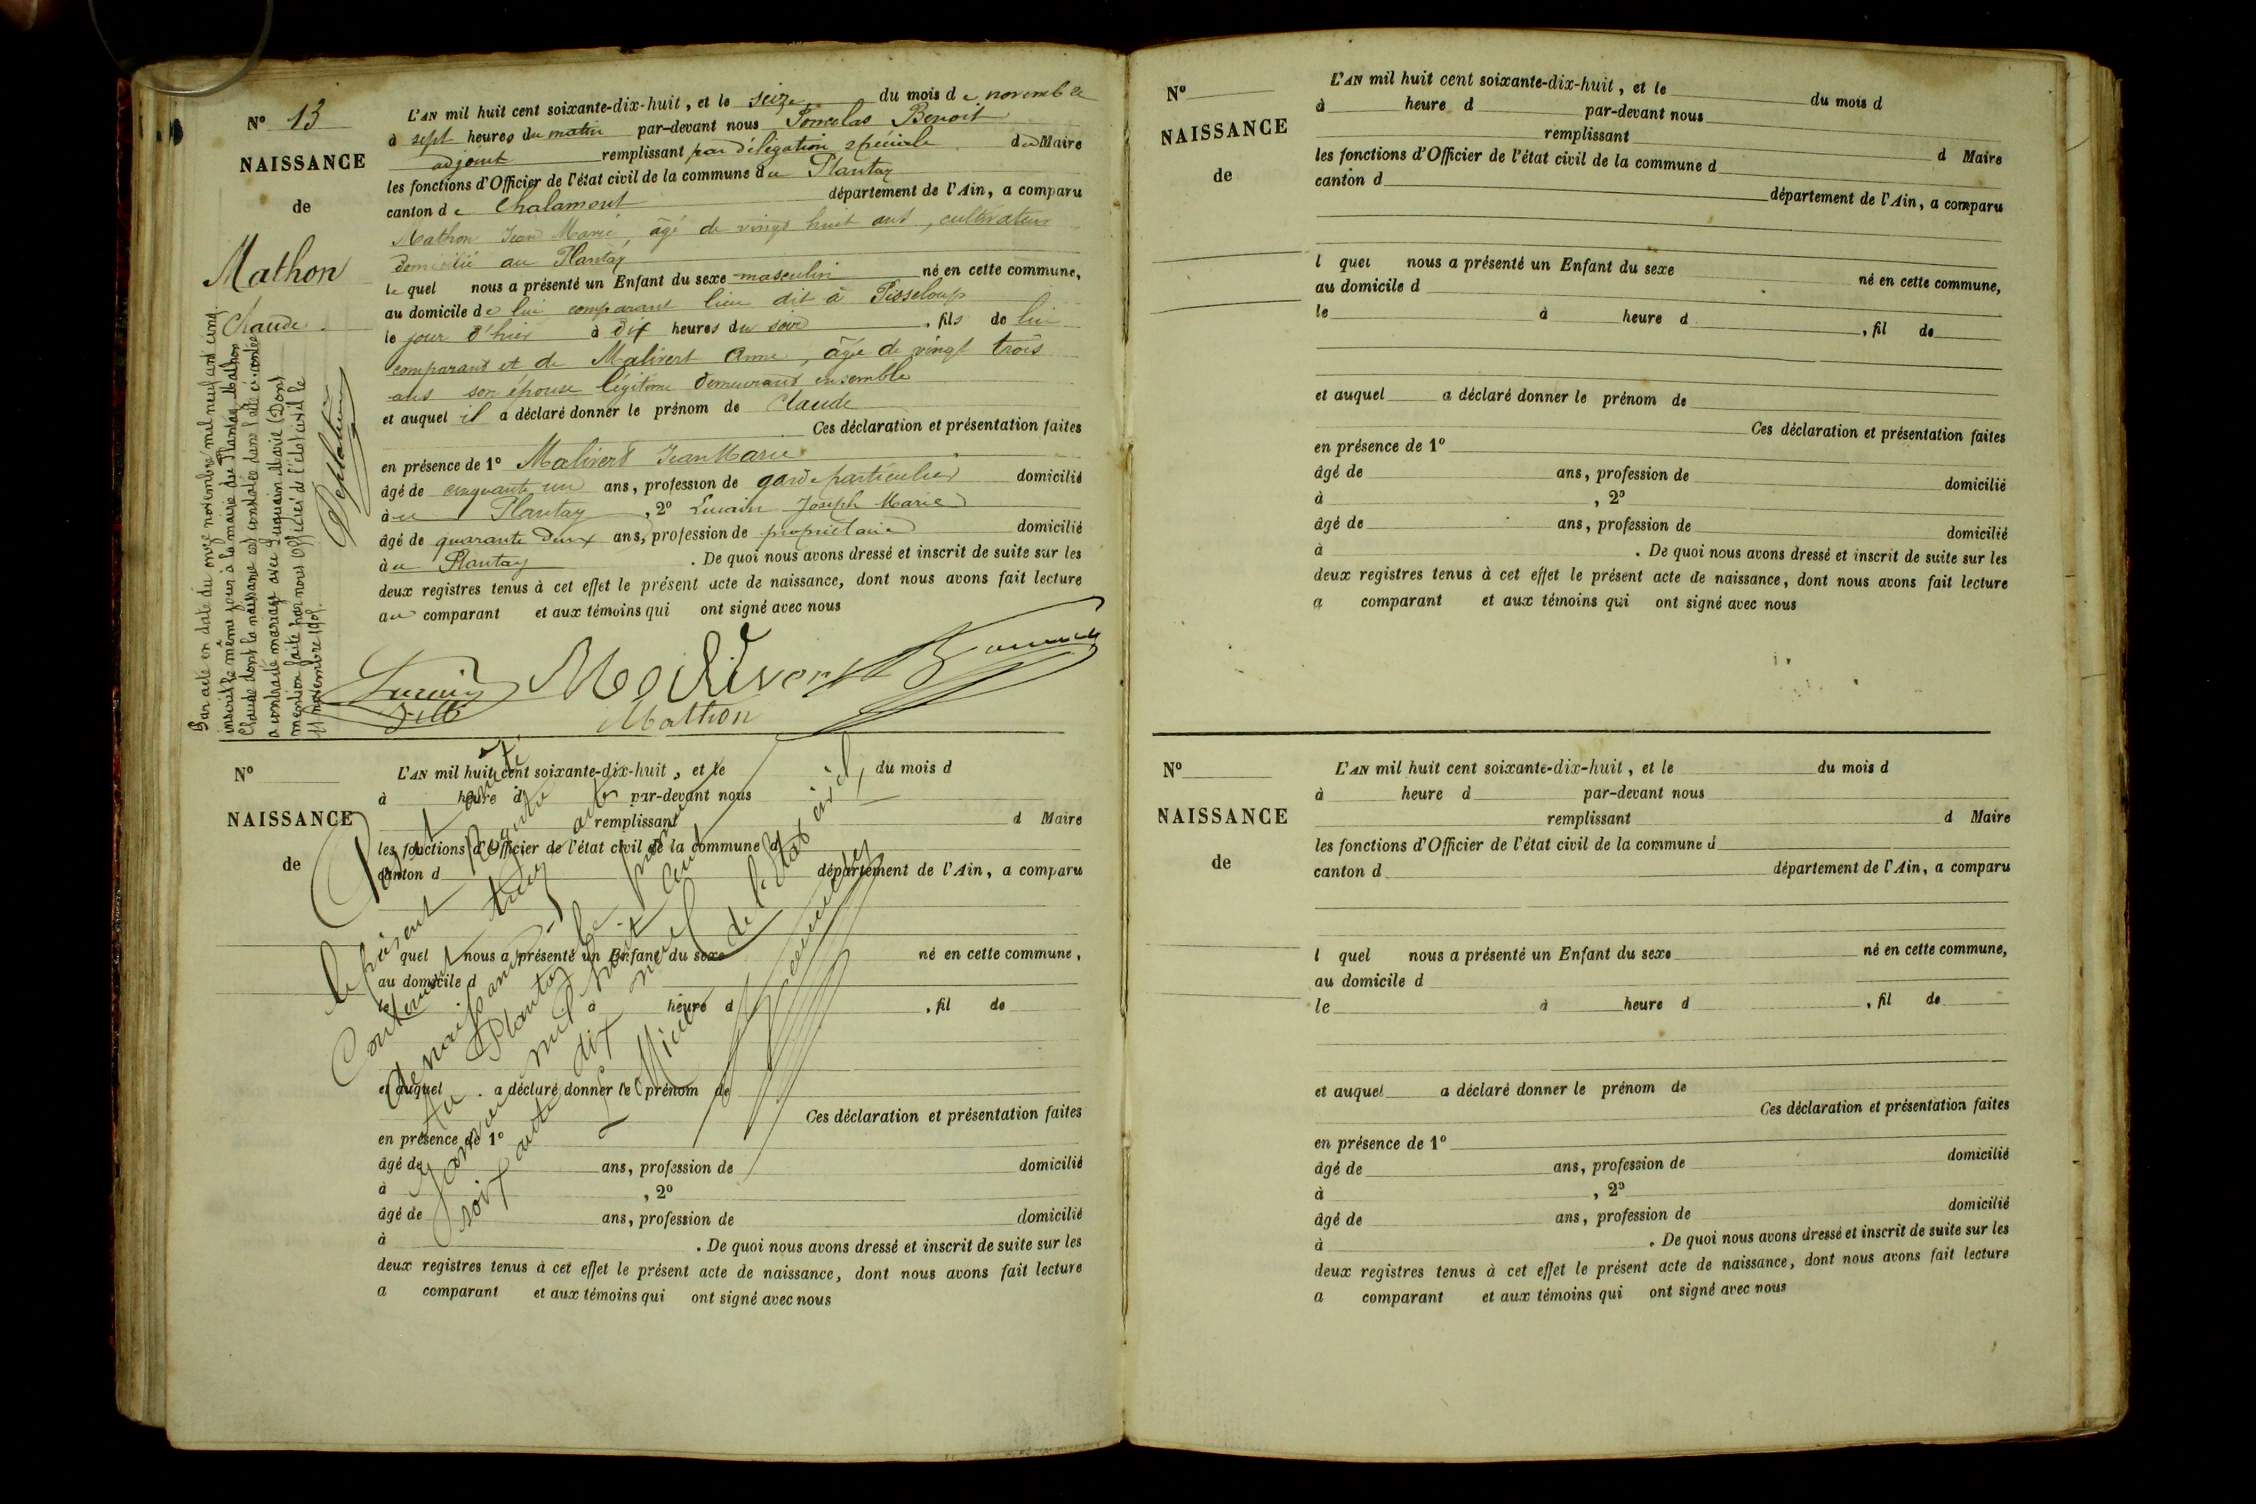 N° 13
NAISSANCE
de
Mathon
Claude.
L'AN mil huit cent soixante-dix-huit, et le seize du mois de novembre
à sept heures du matin par-devant nous Benoit
adjoint remplissant par délégation spéciale du Maire
les fonctions d'Officier de l'état civil de la commune du Plantay
canton de Chalamont département de l'Ain, a comparu
Mathon Jean Marie, âgé de vingt huit ans, cultivateur
domicilié au Plantay
le quel nous a présenté un Enfant du sexe masculin né en cette commune,
au domicile de lui comparant lieu dit à Pisseloup
le jour d'hier à dix heures du soir, fils de lui
comparant et de Malivert Anne, âgée de vingt trois
ans son épouse légitime demeurant ensemble
et auquel il a déclaré donner le prénom de Claude
Ces déclaration et présentation faites
en présence de 1° Malivert Jean Marie
âgé de cinquante un ans, profession de garde particulier domicilié
au Plantay, 2° Lurain Joseph Marie
âgé de quarante deux ans, profession de propriétaire domicilié
au Plantay. De quoi nous avons dressé et inscrit de suite sur les
deux registres tenus à cet effet le présent acte de naissance, dont nous avons fait lecture
au comparant et aux témoins qui ont signé avec nous
Lurain Malivert
Mathon
Par acte en date du onze novembre mil neuf cent cinq
inscrit le même jour à la mairie du Plantay, Mathon
Claude dont la naissance est constatée dans l'acte ci-contre
a contracté mariage avec Marie (Dont
mention faite par nous Officier de l'état civil le
11 novembre 1905.
N°
NAISSANCE
de
L'AN mil huit cent soixante-dix-huit, et le du mois d
à heure d par-devant nous
remplissant d Maire
les fonctions d'Officier de l'état civil de la commune d
canton d département de l'Ain, a comparu
l quel nous a présenté un Enfant du sexe né en cette commune,
au domicile d
le à heure d, fil de
et auquel a déclaré donner le prénom de
Ces déclaration et présentation faites
en présence de 1°
âgé de ans, profession de domicilié
à, 2°
âgé de ans, profession de domicilié
à. De quoi nous avons dressé et inscrit de suite sur les
deux registres tenus à cet effet le présent acte de naissance, dont nous avons fait lecture
a comparant et aux témoins qui ont signé avec nous
le présent Registre
Contenant treize actes
de naissance
Au Plantay le premier
Janvier mil huit cent
soixante dix neuf
L'Officier de l'état civil,
N°
NAISSANCE
de
L'AN mil huit cent soixante-dix-huit, et le du mois d
à heure d par-devant nous
remplissant d Maire
les fonctions d'Officier de l'état civil de la commune d
canton d département de l'Ain, a comparu
l quel nous a présenté un Enfant du sexe né en cette commune,
au domicile d
le à heure d, fil de
et auquel a déclaré donner le prénom de
Ces déclaration et présentation faites
en présence de 1°
âgé de ans, profession de domicilié
à, 2°
âgé de ans, profession de domicilié
à. De quoi nous avons dressé et inscrit de suite sur les
deux registres tenus à cet effet le présent acte de naissance, dont nous avons fait lecture
a comparant et aux témoins qui ont signé avec nous
N°
NAISSANCE
de
L'AN mil huit cent soixante-dix-huit, et le du mois d
à heure d par-devant nous
remplissant d Maire
les fonctions d'Officier de l'état civil de la commune d
canton d département de l'Ain, a comparu
l quel nous a présenté un Enfant du sexe né en cette commune,
au domicile d
le à heure d, fil de
et auquel a déclaré donner le prénom de
Ces déclaration et présentation faites
en présence de 1°
âgé de ans, profession de domicilié
à, 2°
âgé de ans, profession de domicilié
à. De quoi nous avons dressé et inscrit de suite sur les
deux registres tenus à cet effet le présent acte de naissance, dont nous avons fait lecture
a comparant et aux témoins qui ont signé avec nous